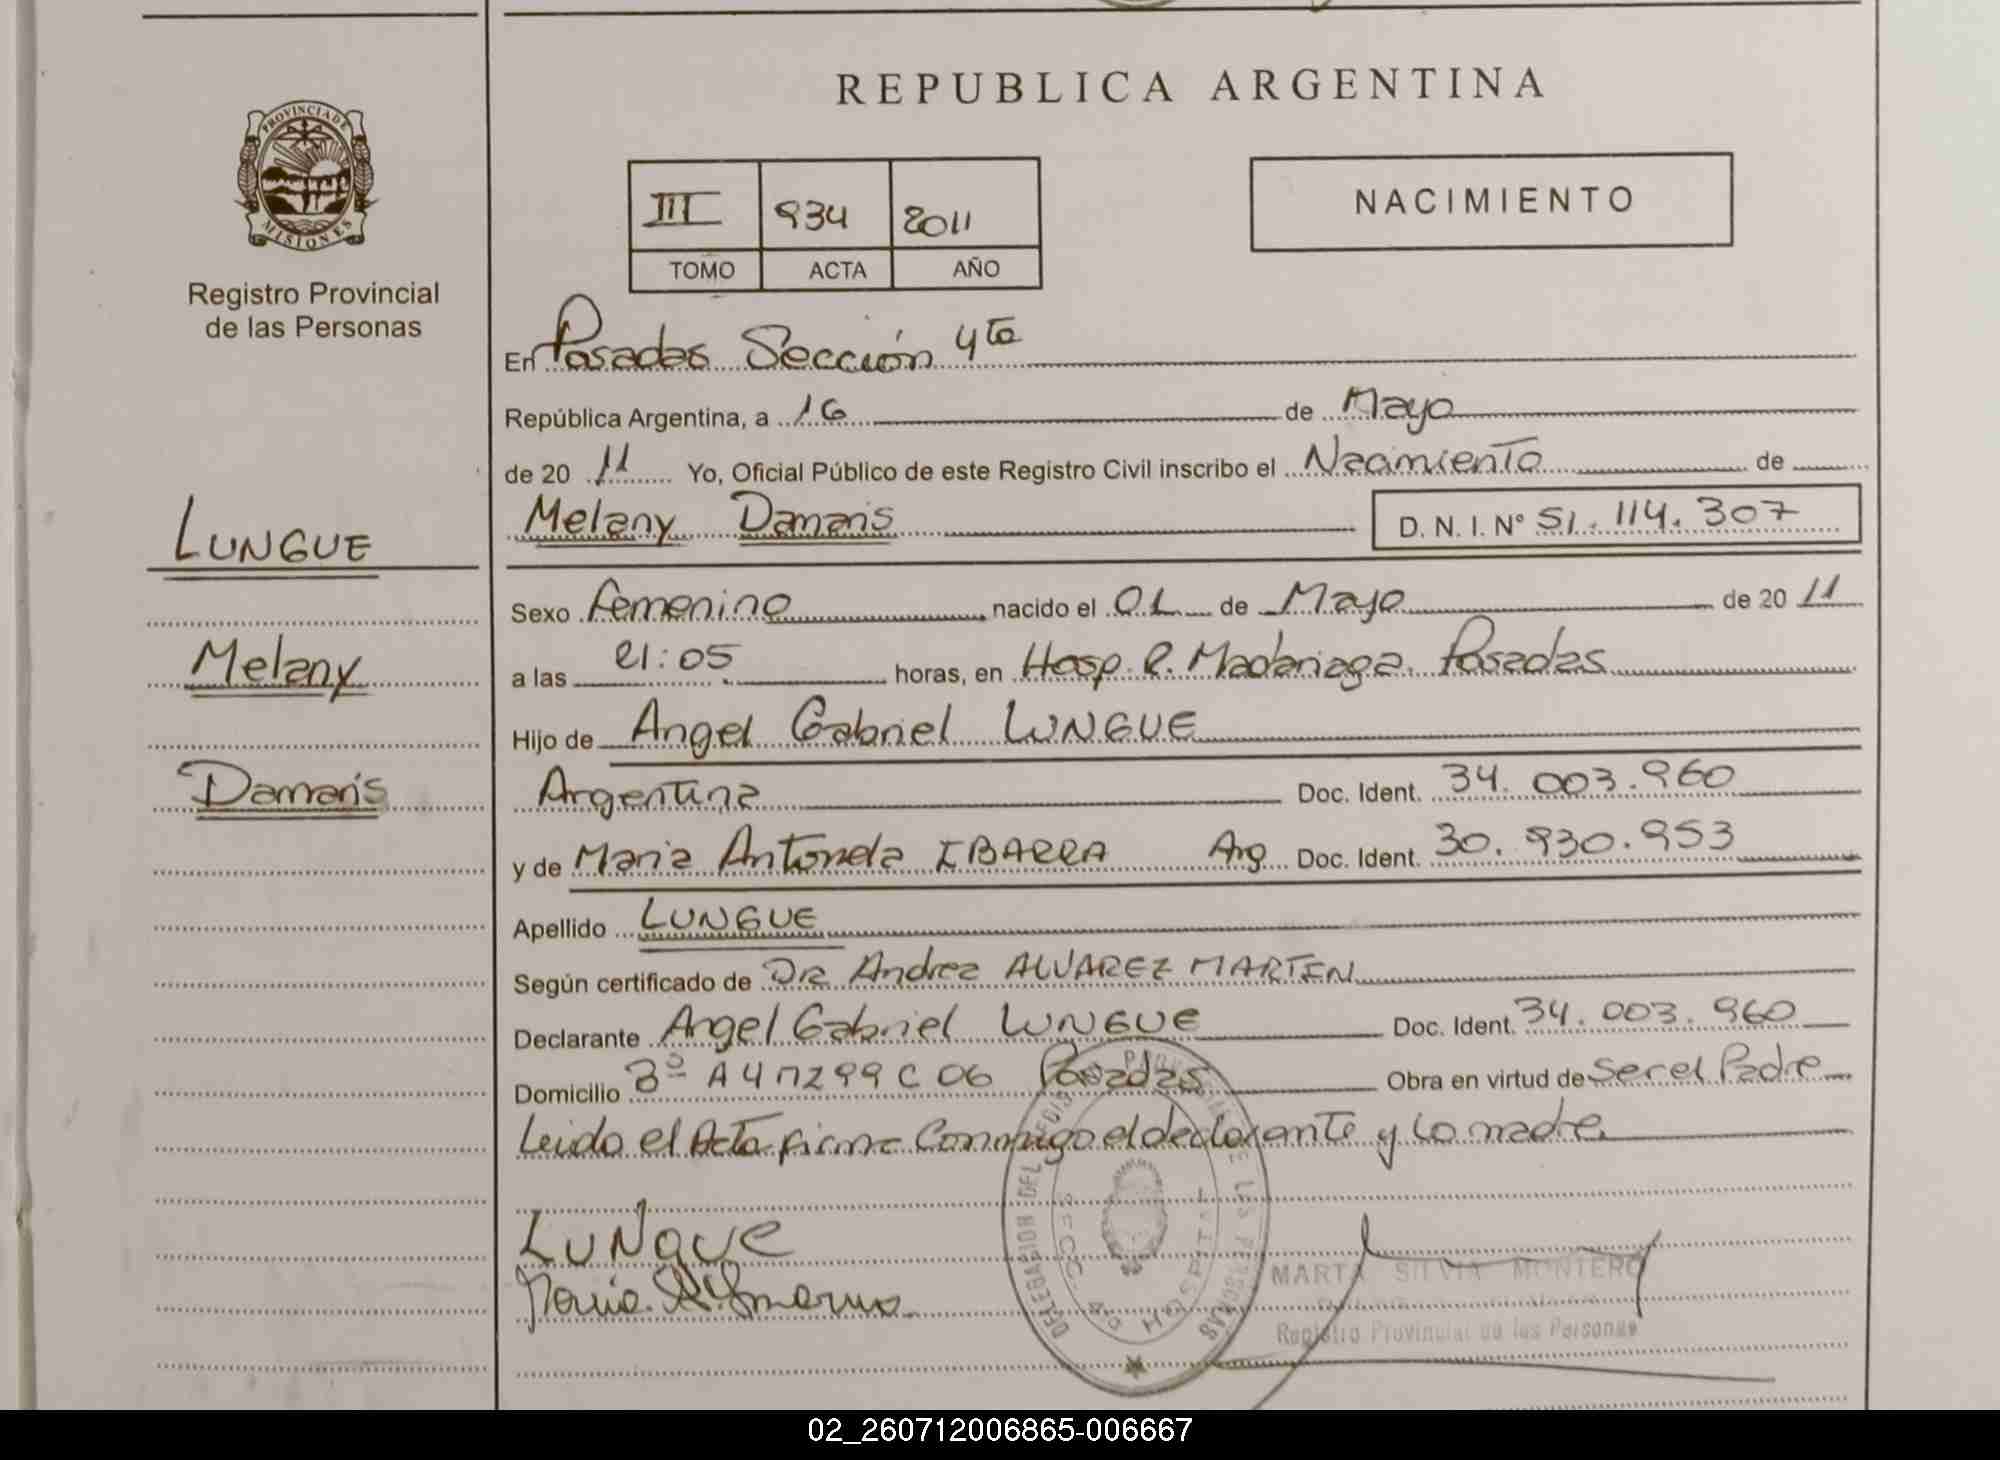 REPUBLICA ARGENTINA
PROVINCIA DE
MISIONES
Registro Provincial
de las Personas
III 934 2011
TOMO ACTA AÑO
NACIMIENTO
En Posadas Sección 4ta
República Argentina, a 16 de Mayo
de 20 11 Yo, Oficial Público de este Registro Civil inscribo el Nacimiento de
Melany Damaris D. N. I. N° 51.114.307
LUNGUE
Melany
Damaris
Sexo Femenino nacido el 01 de Mayo de 20 11
a las 21:05 horas, en Hosp. R. Madariaga. Posadas
Hijo de Angel Gabriel LUNGUE
Argentina Doc. Ident. 34.003.960
y de Maria Antonela IBARRA Arg Doc. Ident. 30.930.953
Apellido LUNGUE
Según certificado de Dra Andrea ALVAREZ MARTEN
Declarante Angel Gabriel LUNGUE Doc. Ident. 34.003.960
Domicilio Bº A4 nz 99 C 06 Posadas Obra en virtud de Ser el Padre
Leido el Acta firma Conmigo el declarante y la madre
LUNgUe
DELEGACION DEL REGISTRO PROVINCIAL DE LAS PERSONAS
HOSPITAL
MARTA SILVIA MONTERO
Registro Provincial de las Personas
02_260712006865-006667